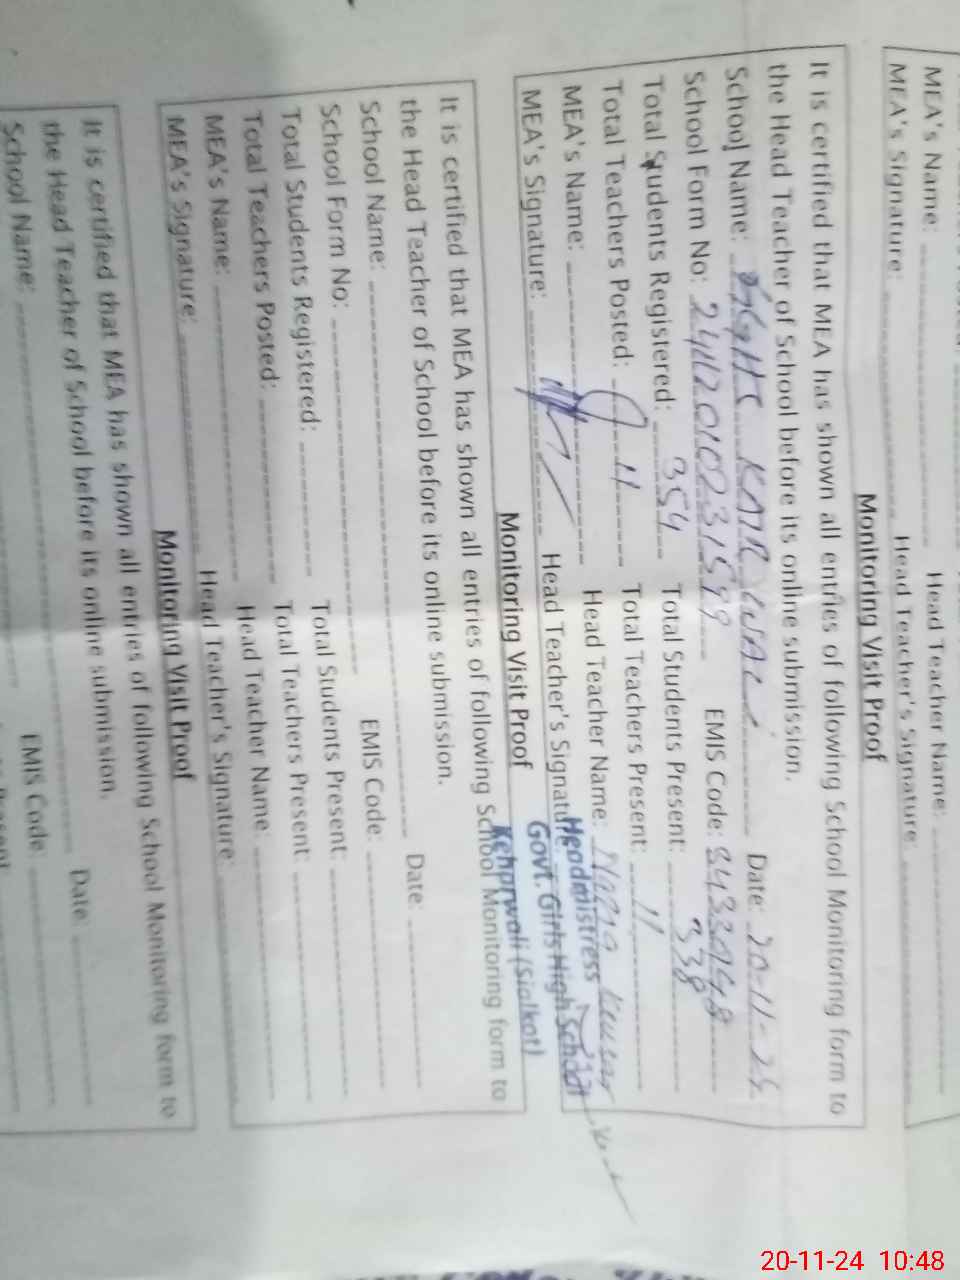 MEA's Name:
Head Teacher Name:
MEA's Signature:
Head Teacher's Signature:
Monitoring Visit Proof
It is certified that MEA has shown all entries of following School Monitoring form to
the Head Teacher of School before its online submission.
School Name: Date: 20-11-24
School Form No: EMIS Code:
Total Students Registered: 354 Total Students Present: 338
Total Teachers Posted: 11 Total Teachers Present: 11
MEA's Name: Head Teacher Name: Kausar
MEA's Signature: Head Teacher's Signature:
Headmistress
Govt. Girls High School
(Sialkot)
Monitoring Visit Proof
It is certified that MEA has shown all entries of following School Monitoring form to
the Head Teacher of School before its online submission.
School Name: Date:
School Form No: EMIS Code:
Total Students Registered: Total Students Present:
Total Teachers Posted: Total Teachers Present:
MEA's Name: Head Teacher Name:
MEA's Signature: Head Teacher's Signature:
Monitoring Visit Proof
It is certified that MEA has shown all entries of following School Monitoring form to
the Head Teacher of School before its online submission.
School Name: Date:
EMIS Code:
20-11-24 10:48